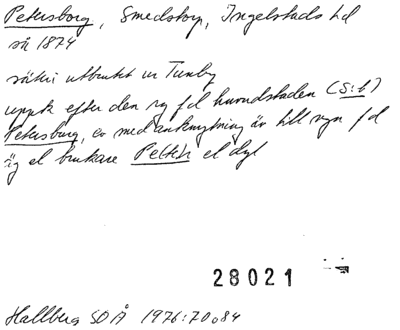 Petersborg, Smedstorp, Ingelstads hd
så 1874
säkert utbrutet ur Tunby
uppk efter den ry fd huvudstaden (S:t)
Petersburg, ev med anknytning äv till ngn fd
äg el brukare Petter el dyl
28021
Hallberg SOÅ 1976:70 o 84